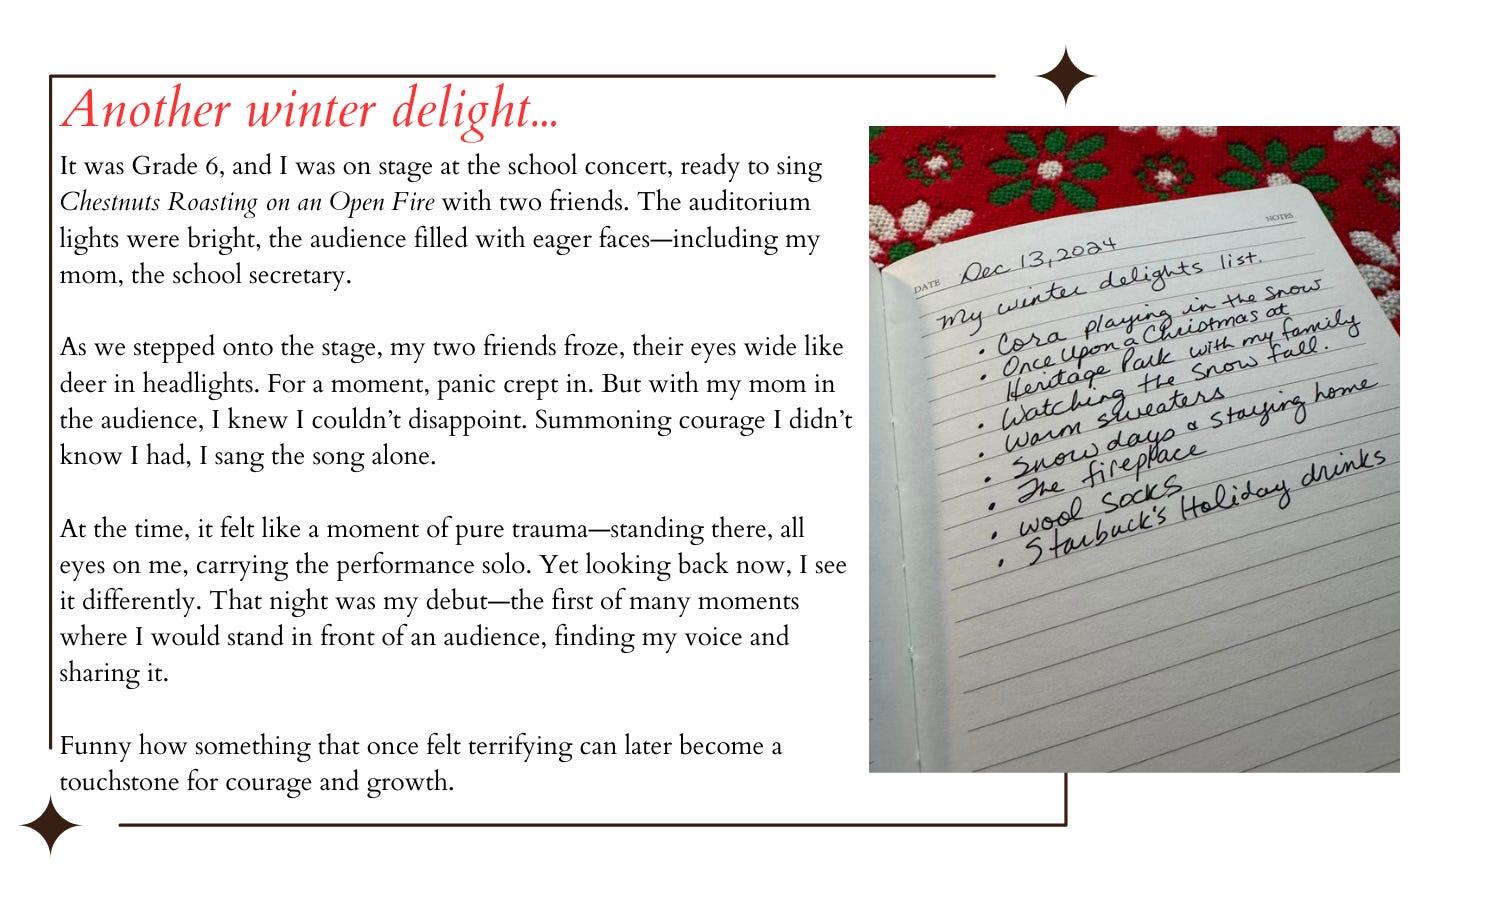 Another winter delight...
It was Grade 6, and I was on stage at the school concert, ready to sing
Chestnuts Roasting on an Open Fire with two friends. The auditorium
lights were bright, the audience filled with eager faces—including my
mom, the school secretary.
As we stepped onto the stage, my two friends froze, their eyes wide like
deer in headlights. For a moment, panic crept in. But with my mom in
the audience, I knew I couldn’t disappoint. Summoning courage I didn’t
know I had, I sang the song alone.
At the time, it felt like a moment of pure trauma—standing there, all
eyes on me, carrying the performance solo. Yet looking back now, I see
it differently. That night was my debut—the first of many moments
where I would stand in front of an audience, finding my voice and
sharing it.
Funny how something that once felt terrifying can later become a
touchstone for courage and growth.
NOTES
DATE Dec 13, 2024
My winter delights list.
• Cora playing in the snow
• Once Upon a Christmas at
Heritage Park with my family
• Watching the snow fall.
• Warm sweaters
• Snow days & staying home
• The fireplace
• wool socks
• Starbuck's Holiday drinks